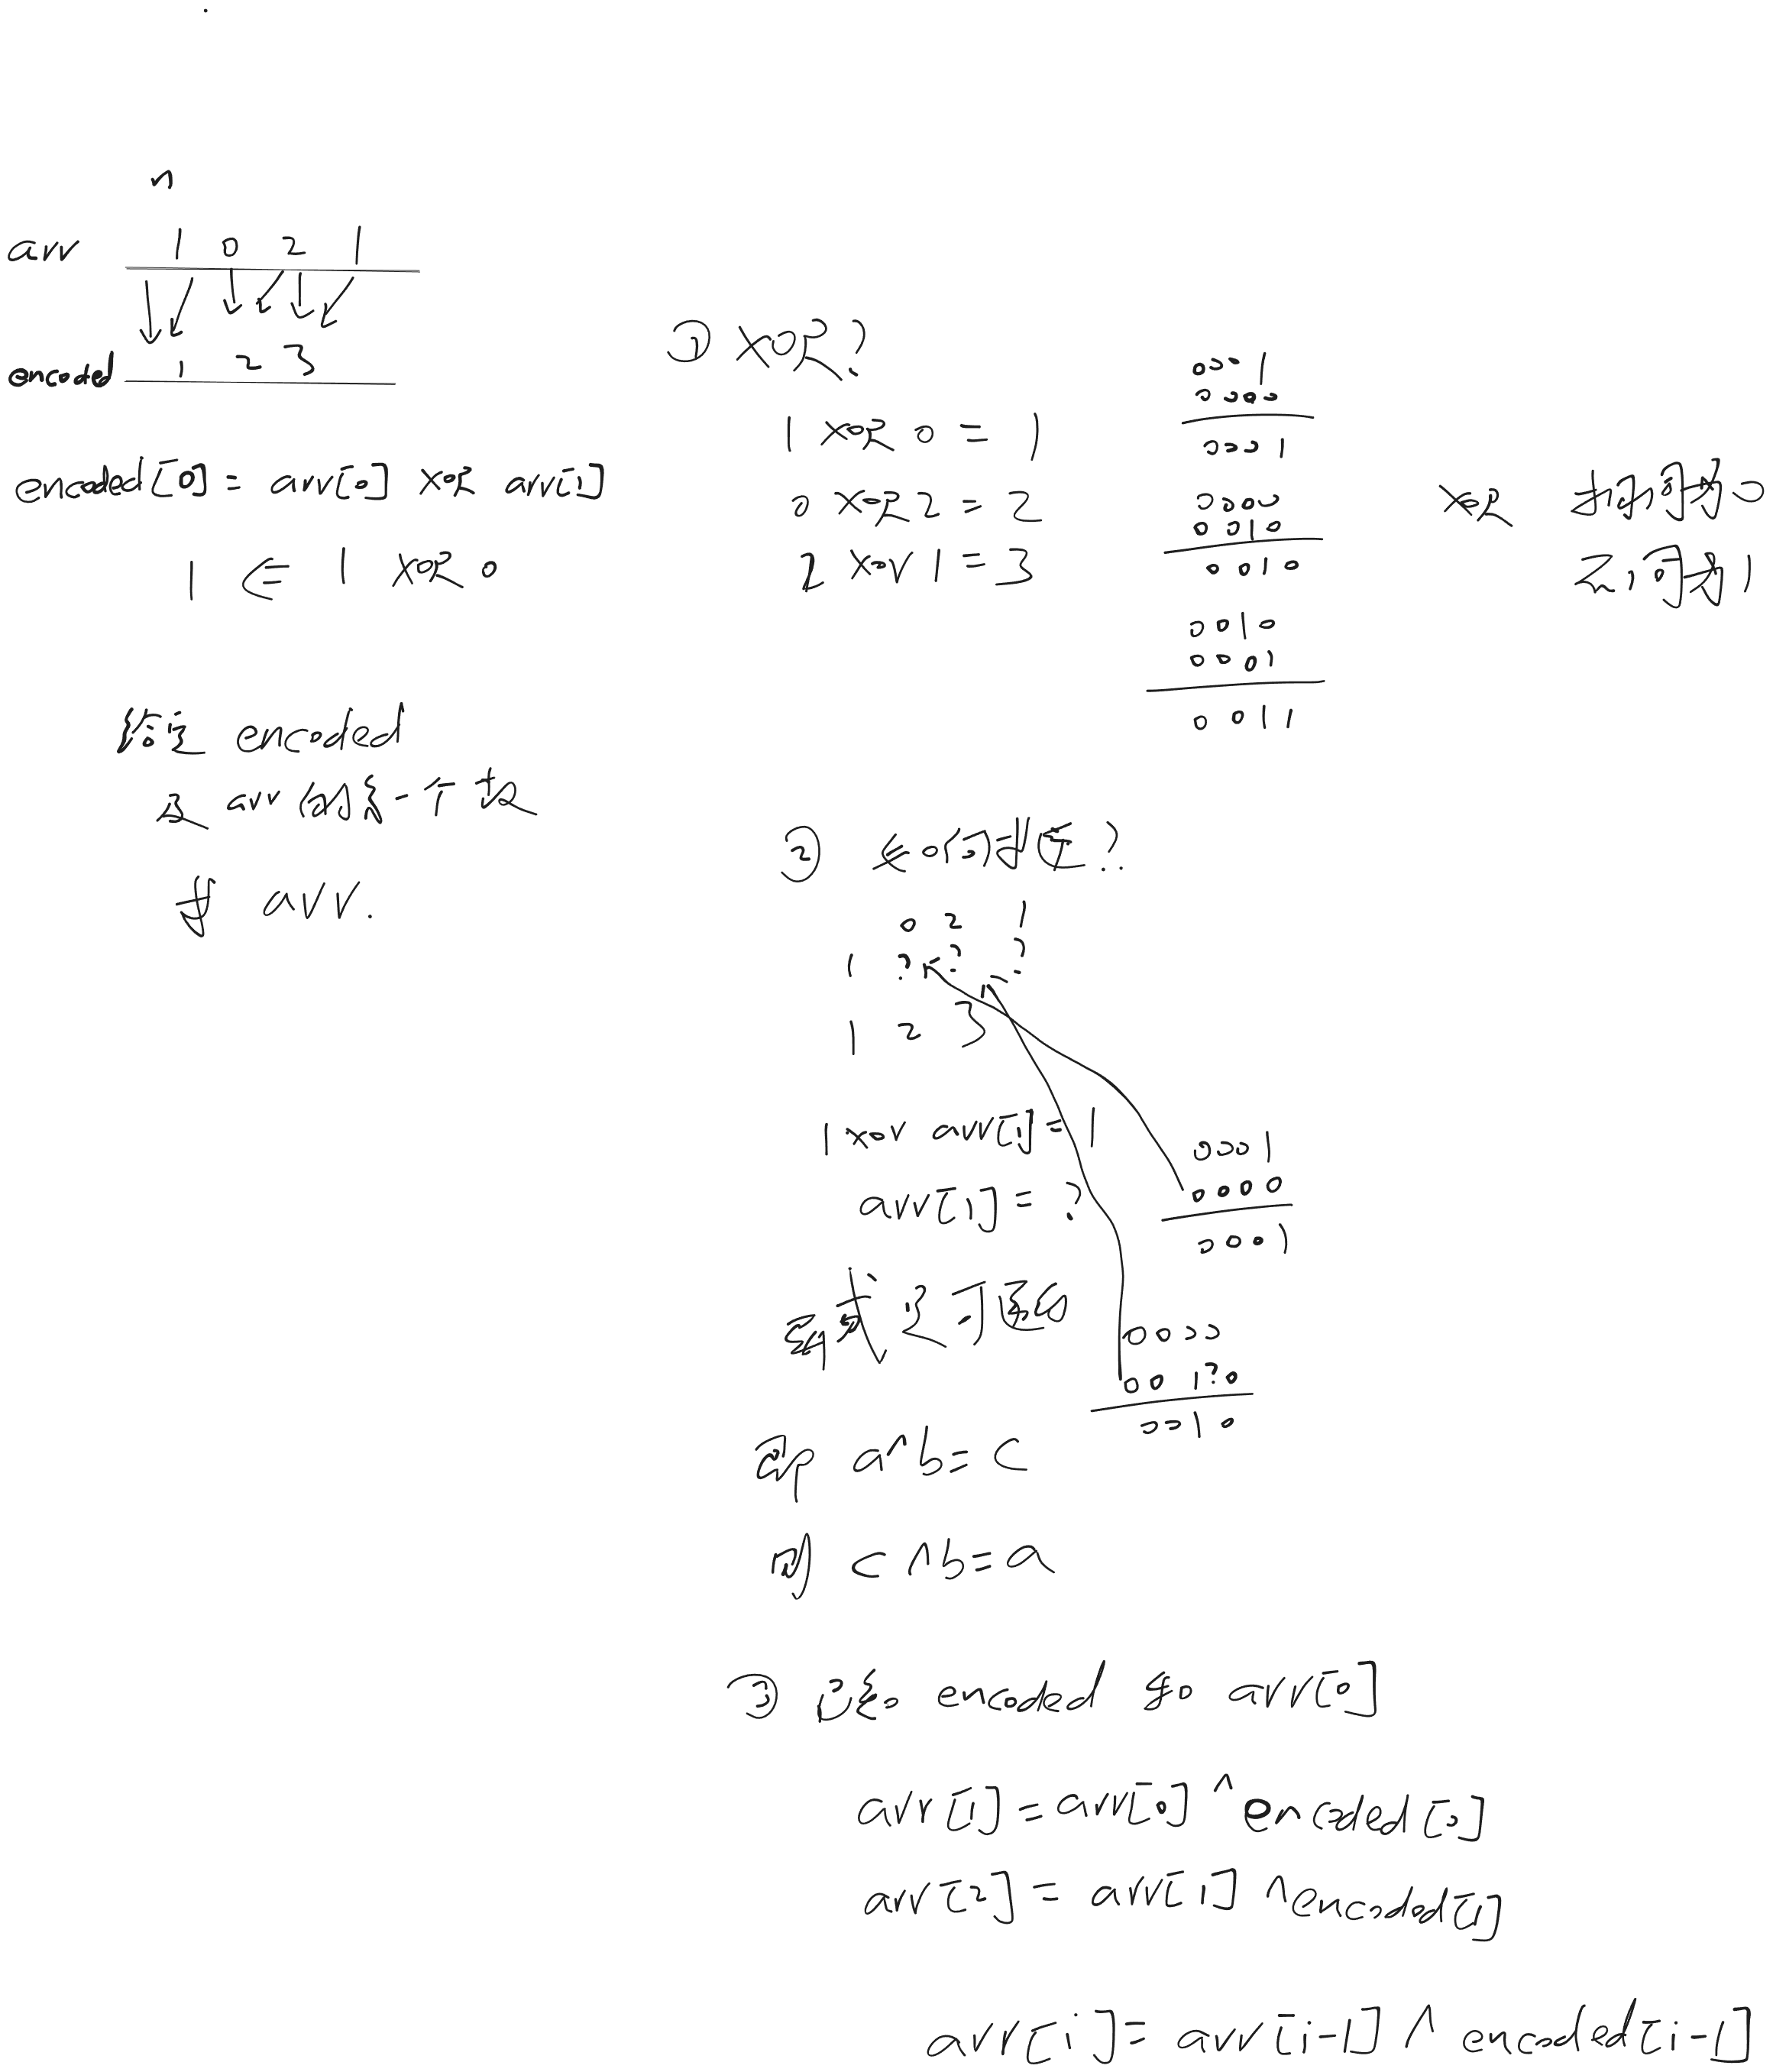 n
arr 1 0 2 1
encoded 1 2 3
encoded[0] = arr[0] XOR arr[1]
1 ⇐ 1 XOR 0
给定 encoded
及 arr 的第一个数
求 arr.
① XOR?
1 XOR 0 = 1
0 XOR 2 = 2
2 xor 1 = 3
0001
0000
0001
0000
0010
0010
0010
0001
0011
XOR 相同为0
不同为1
② 如何求逆?
0 2 1
1 ? ? ?
1 2 3
1 xor arr[1] = 1
arr[1] = ?
0001
0000
0001
异或是可逆的
0000
001?0
0010
即 a^b = c
则 c^b = a
③ 已知 encoded 和 arr[0]
arr[1] = arr[0] ^ encoded[0]
arr[2] = arr[1] ^ encoded[1]
arr[i] = arr[i-1] ^ encoded[i-1]